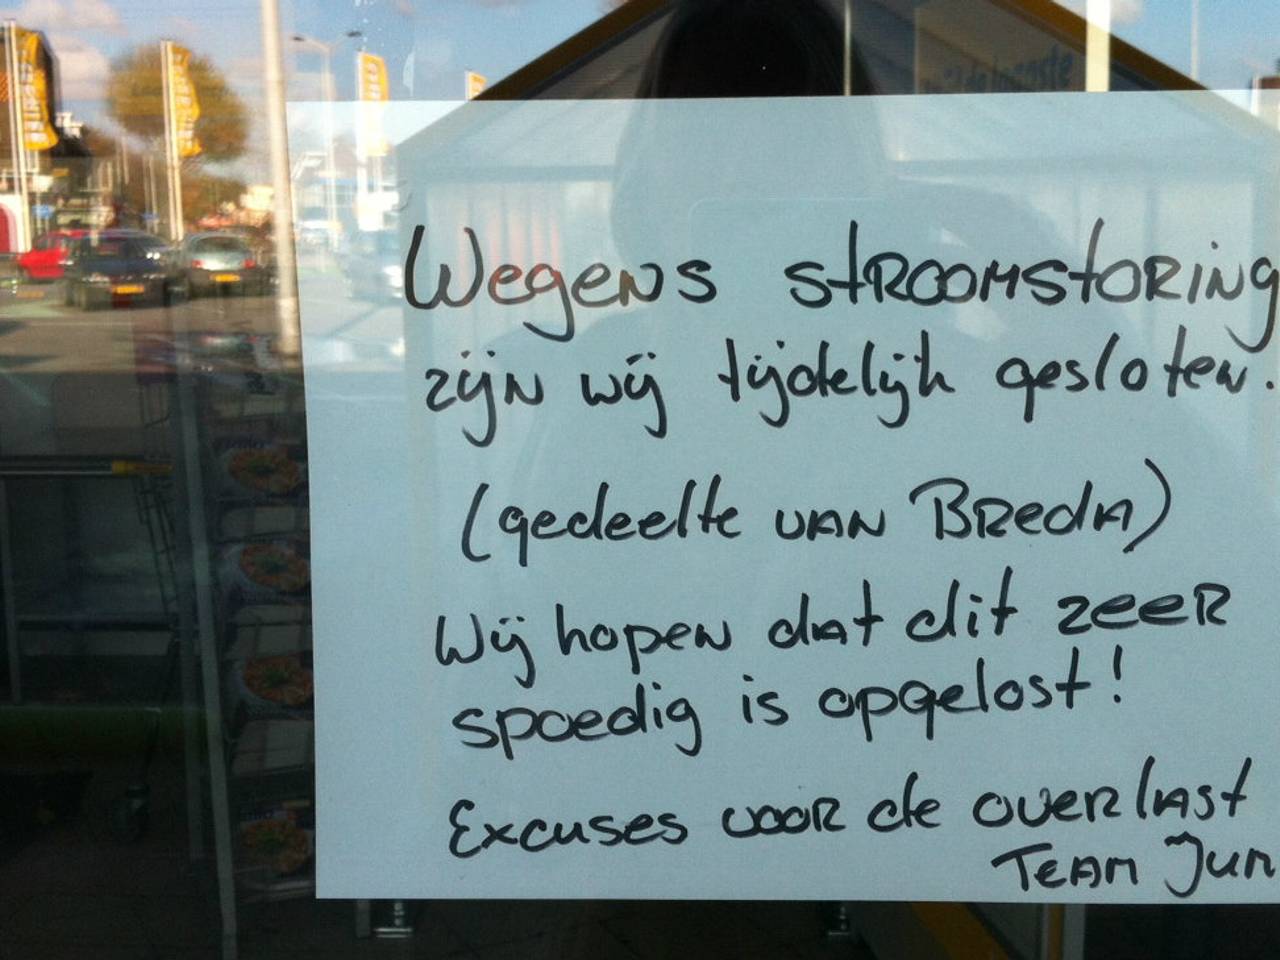 Wegens stroomstoring
zijn wij tijdelijk gesloten.
(gedeelte van Breda)
Wij hopen dat dit zeer
spoedig is opgelost!
Excuses voor de overlast
Team Jum